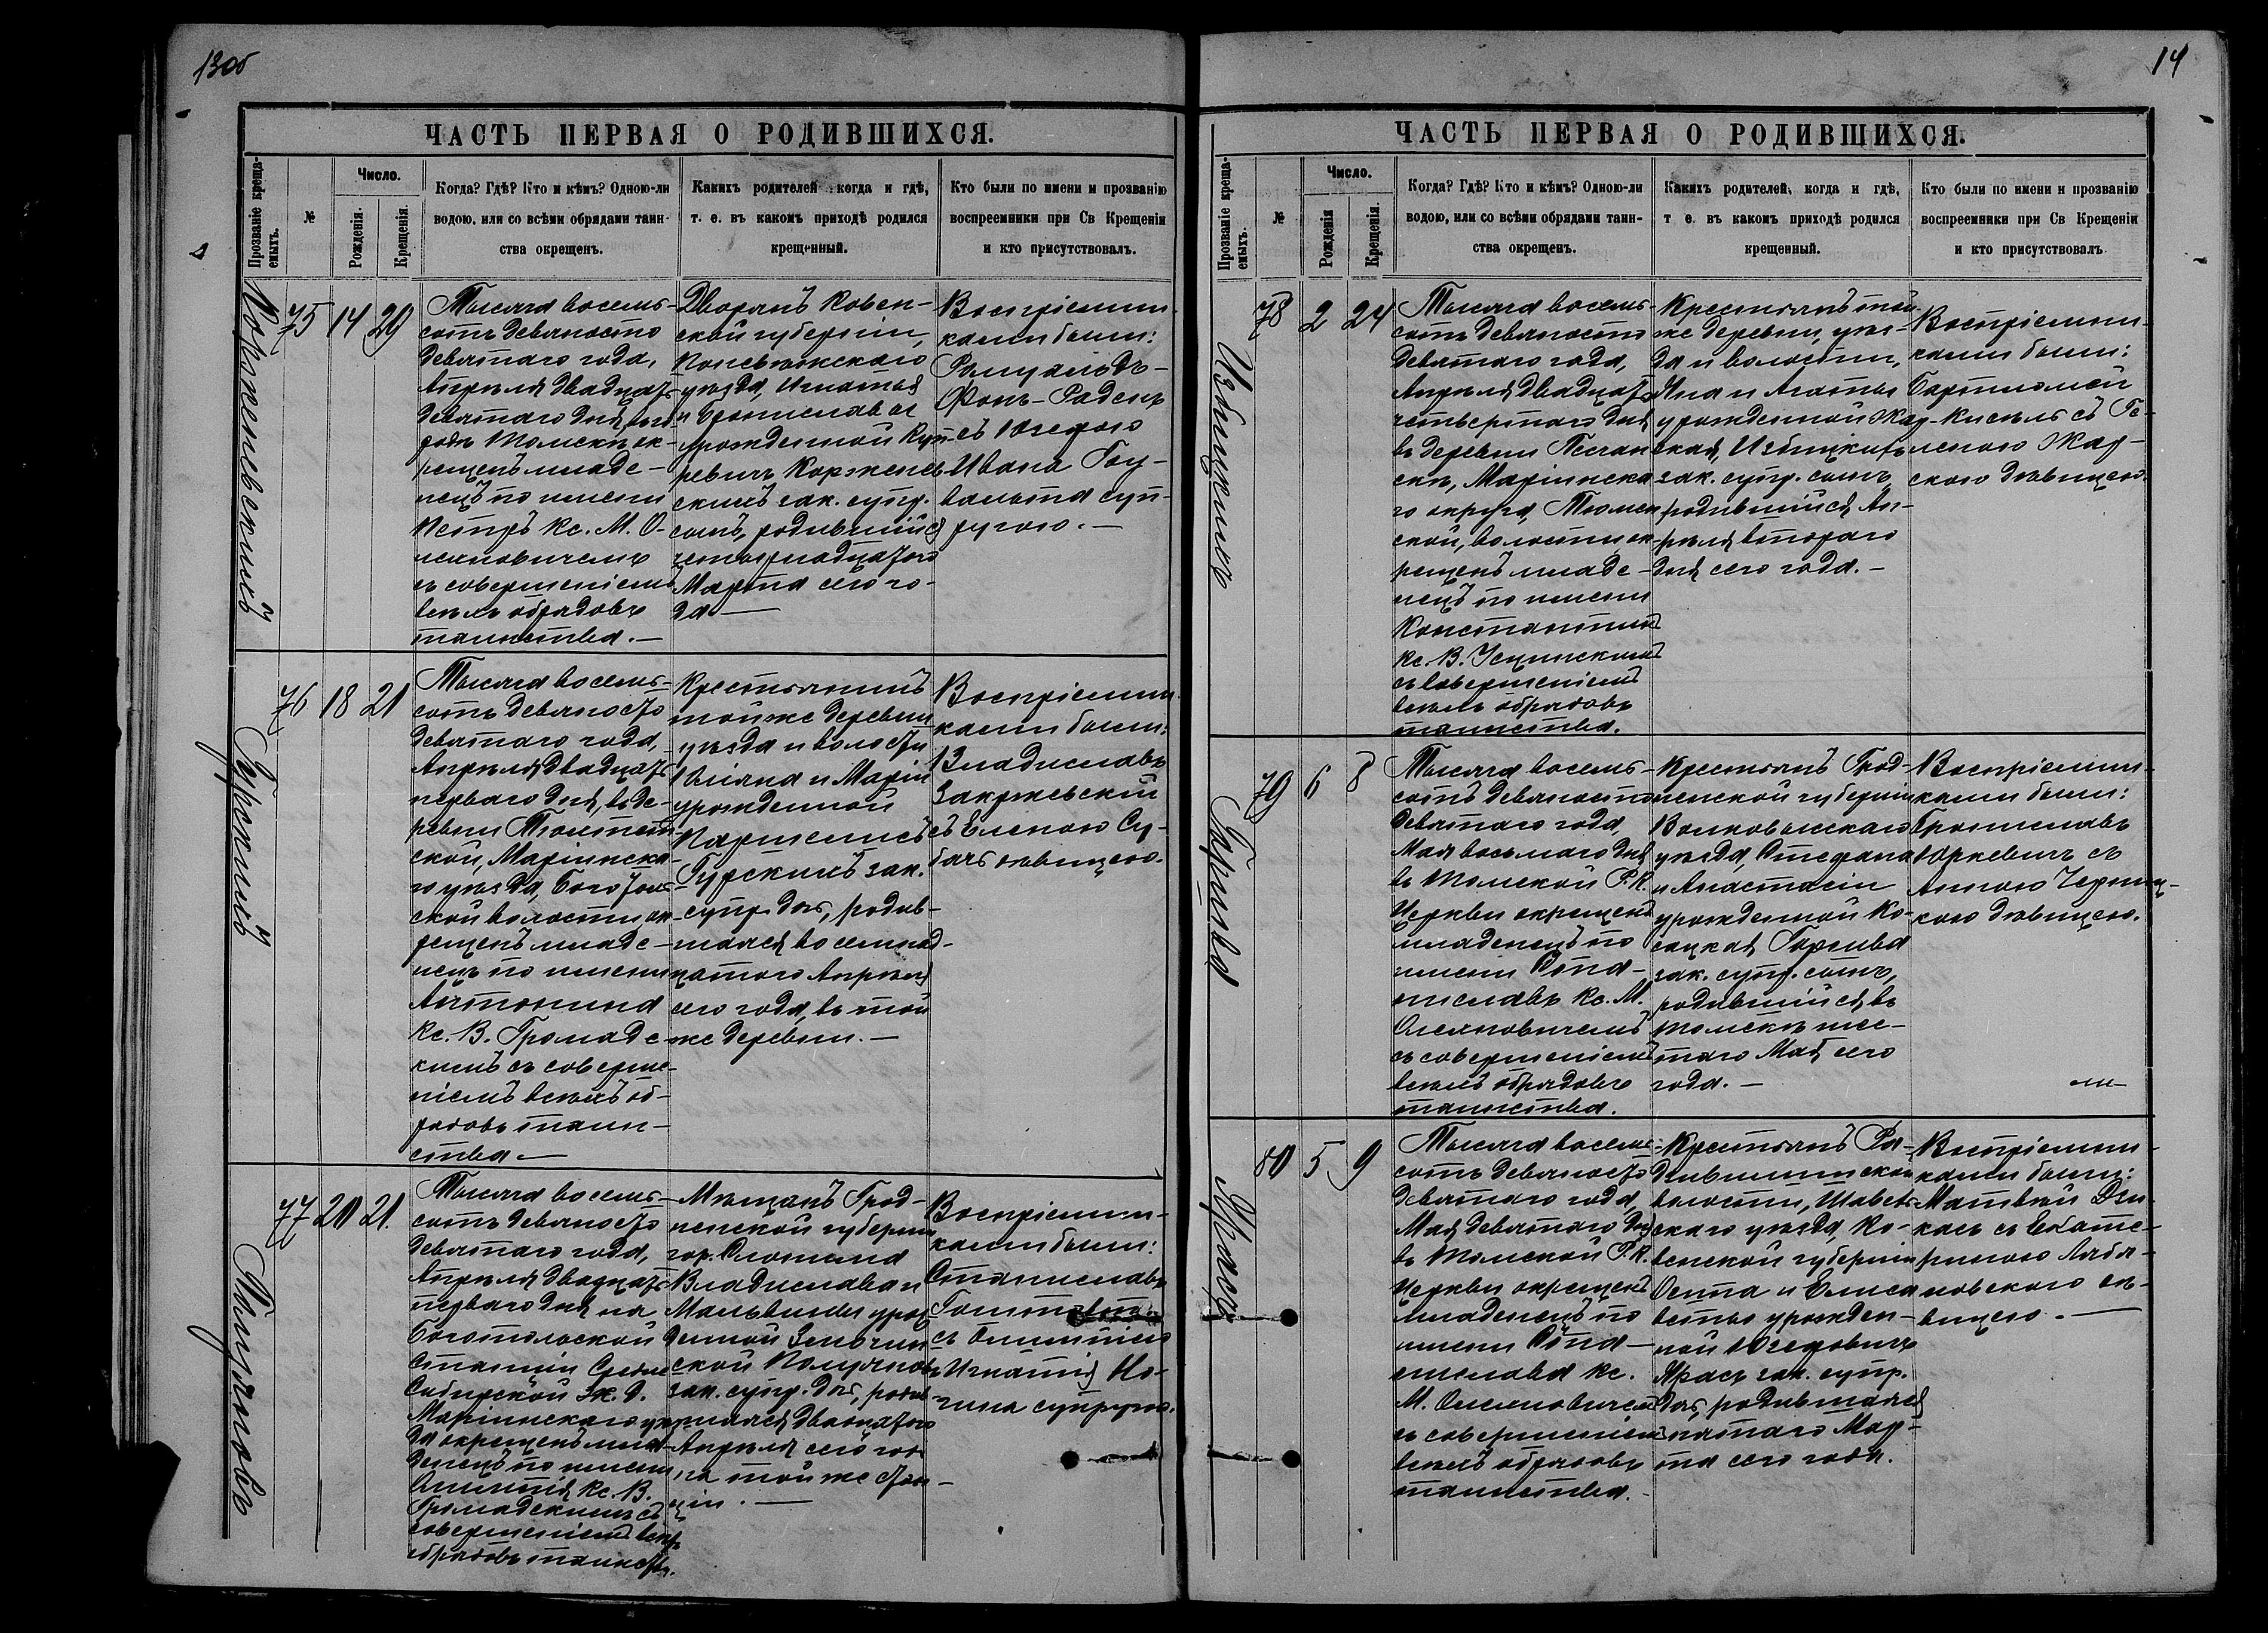 13об
ЧАСТЬ ПЕРВАЯ О РОДИВШИХСЯ.
Прозваніе креща-
емыхъ.
№
Число.
Рожденія.
Крещенія.
Когда? Гдѣ? Кто и кѣмъ? Одною-ли
водою, или со всѣми обрядами таин-
ства окрещенъ.
Какихъ родителей когда и гдѣ,
т. е. въ какомъ приходѣ родился
крещенный.
Кто были по имени и прозванію
воспреемники при Св Крещеніи
и кто присутствовалъ.
Корженевскихъ
75 14 29
Тысяча восемь-
сотъ девяносто
девятаго года,
Апрѣля двадцать
девятаго дня, въ го
родѣ Томскѣ ок-
рещенъ младе-
нецъ по имени
Петръ кс. М. О-
леяновичемъ
съ совершеніемъ
всѣхъ обрядовъ
таинства.—
Дворянъ Ковен-
ской губерніи,
Поневѣжскаго
уѣзда, Игнатія
и Брониславы
урожденной
ревичъ Корженев
скихъ зак. супр.
сынъ, родившійся
четырнадцатого
Марта сего го-
да—
Воспріемни-
ками были:
Ромуальдъ-
Фонъ-Раденъ
съ Юзефою
Ивана
вальта суп-
ругою.—
Гурскихъ
76 18 21
Тысяча восемь-
сотъ девяносто
девятаго года,
Апрѣля двадцать
перваго дня, въ де-
ревни
ской, Маріинска-
го уѣзда, Боготоль
ской волости ок-
рещенъ младе-
нецъ по имени
Антонина
кс. В. Громадс-
кимъ съ соверше-
ніемъ всѣхъ об-
рядовъ таин-
ства.—
Крестьянинъ
той же деревни
уѣзда и волости
и Маріи
урожденной
Гурскихъ зак.
супр. дочь, родив-
шаяся восемнад-
цатого Апрѣля
сего года, въ той
же деревни.—
Воспріемни-
ками были:
Владиславъ
Закржевскій
съ Еленою Су-
бачъ дѣвицею.
77 20 21
Тысяча восемь-
сотъ девяносто
девятаго года,
Апрѣля двадцать
перваго дня на
Боготольской
Станціи Средне
Сибирской Ж. д.
Маріинскаго уѣз
да окрещенъ мла-
денецъ по имени
кс. В.
Громадскимъ съ
совершеніемъ всѣхъ
обрядовъ таинства.
Мѣщанъ Грод-
ненской губерніи
гор. Слонима
Владислава и
Мальвины урож
денной
ской
зак. супр. дочь, родив
шаяся двадцатого
Апрѣля сего года
на той же стан-
ціи.—
Воспріемни-
ками были:
Станиславъ
съ
Игнатія
супругою.
14
ЧАСТЬ ПЕРВАЯ О РОДИВШИХСЯ.
Прозваніе креща-
емыхъ.
№
Число.
Рожденія
Крещенія.
Когда? Гдѣ? Кто и кѣмъ? Одною-ли
водою, или со всѣми обрядами таин-
ства окрещенъ.
Какихъ родителей, когда и гдѣ,
т е. въ какомъ приходѣ родился
крещенный.
Кто были по имени и прозванію
воспреемники при Св Крещеніи
и кто присутствовалъ.
Избицкихъ
78 2 24
Тысяча восемь-
сотъ девяносто
девятаго года,
Апрѣля двадцать
четвертаго дня
въ деревни
Маріинска
го округа,
ской, волости ок-
рещенъ младе-
нецъ по имени
Константинъ
кс. В.
съ совершеніемъ
всѣхъ обрядовъ
таинства.
Крестьянъ той
же деревни, уѣз-
да и волости,
и Агаты
урожденной Жар-
ская, Избицкихъ
зак. супр. сынъ,
родившійся Ап-
рѣля втораго
дня сего года.—
Воспріемни-
ками были:
Бартломей
Кисель съ Ге-
леною Жар-
скою дѣвицею.
79 6 8
Тысяча восемь-
сотъ девяносто
девятаго года,
Мая восьмаго дня
въ Томской Р. К.
Церкви окрещенъ
младенецъ по
имени Ста-
ниславъ кс. М.
Олеяновичемъ
съ совершеніемъ
всѣхъ обрядовъ
таинства.
Крестьянъ Грод-
ненской губерніи
Волковысскаго
уѣзда, Стефана
и Анастасіи
урожденной Ко-
сицкая
зак. супр. сынъ,
родившійся въ
Томскѣ шес-
таго Мая сего
года.—
Воспріемни-
ками были:
Брониславъ
Юркевичъ съ
Анною
кою дѣвицею.
Ярасъ
80 5 9
Тысяча восемь-
сотъ девяносто
девятаго года,
Мая девятаго дня
въ Томской Р. К.
Церкви окрещенъ
младенецъ по
имени Ста-
нислава кс.
М. Олеяновичемъ
съ совершеніемъ
всѣхъ обрядовъ
таинства.
Крестьянъ
волости, Шавель-
скаго уѣзда, Ко-
венской губерніи
Осипа и Елиса
веты урожден-
ной Юзефовичъ
Ярасъ зак. супр.
дочь, родившаяся
пятаго Мар-
та сего года.
Воспріемни-
ками были:
Матвѣй
съ Екате-
риною
вицею.—